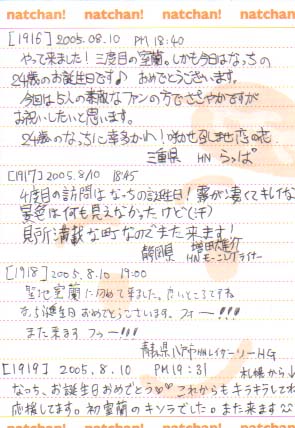 natchan! natchan! natchan! natchan!
[1916] 2005.08.10 PM 18:40
やって来ました!三度目の室蘭。しかも今日はなっちの
24歳のお誕生日です♪ おめでとうございます。
今回は5人の素敵なファンの方でささやかですが
お祝いしたいと思います。
24歳のなっちに幸多かれ!咲かせ召しませ恋の花
三重県 HN らっぱ
[1917] 2005.8/10 18:45
4度目の訪問はなっちの誕生日!霧が凄くてキレイな
景色は何も見えなかったけど(汗)
見所満載な町なのでまた来ます!
静岡県 増田雄介
HNモーニングライナー
[1918] 2005.8.10 19:00
聖地室蘭に初めて来ました。良いところですね
なっち誕生日おめでとうございます。フォー!!!
また来ます フゥー!!!
青森県八戸市HNレイザーソーHG
[1919] 2005.8.10 PM19:31 札幌から↓
なっち、お誕生日おめでとう♡♡これからもキラキラしてね
応援してます。初室蘭のキソラでした。また来ます
natchan! natchan! natchan! natchan!